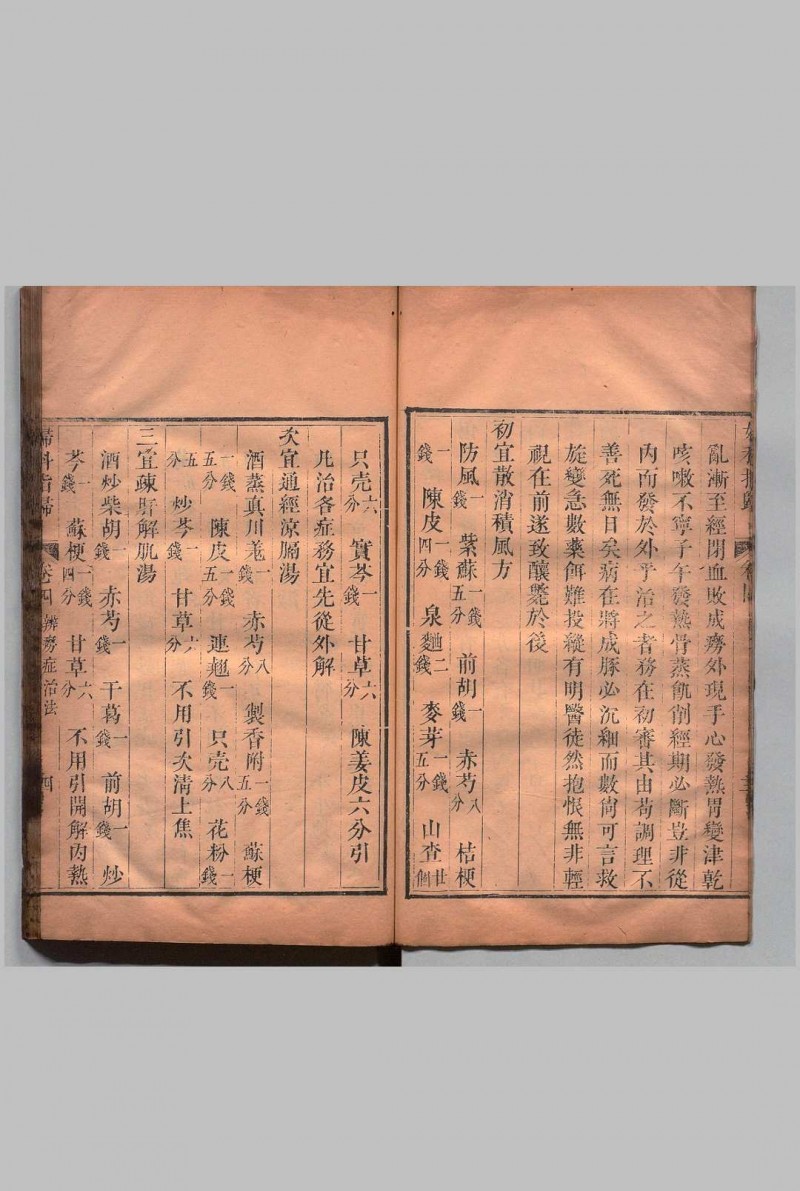 亂漸至經閉血敗成癆外現手心發熱胃變津乾
咳嗽不寧子午發熱骨蒸飢削經期必斷豈非從
內而發於外乎治之者務在初審其由苟調理不
善死無日矣病在將成脈必沉細而數尚可言救
旋變急數藥餌難投縱有明醫徒然抱恨無非輕
視在前遂致釀斃於後
初宜散消積風方
防風一錢 紫蘇一錢五分 前胡一錢 赤芍八分 桔梗
一錢 陳皮一錢四分 泉麯二錢 麥芽一錢五分 山查廿個
只壳六分 實芩一錢 甘草六分 陳姜皮六分引
凡治各症務宜先從外解
次宜通經涼膈湯
酒蒸真川羗一錢 赤芍八分 製香附一錢五分 蘇梗
一錢五分 陳皮一錢五分 連翹一錢 只壳八分 花粉一錢
五分 炒芩一錢 甘草六分 不用引次清上焦
三宜疎肝解肌湯
酒炒柴胡一錢 赤芍一錢 干葛一錢 前胡一錢 炒
芩一錢 蘇梗一錢四分 甘草六分 不用引開解內熱
婦科指歸 卷四 辨癆症治法 四